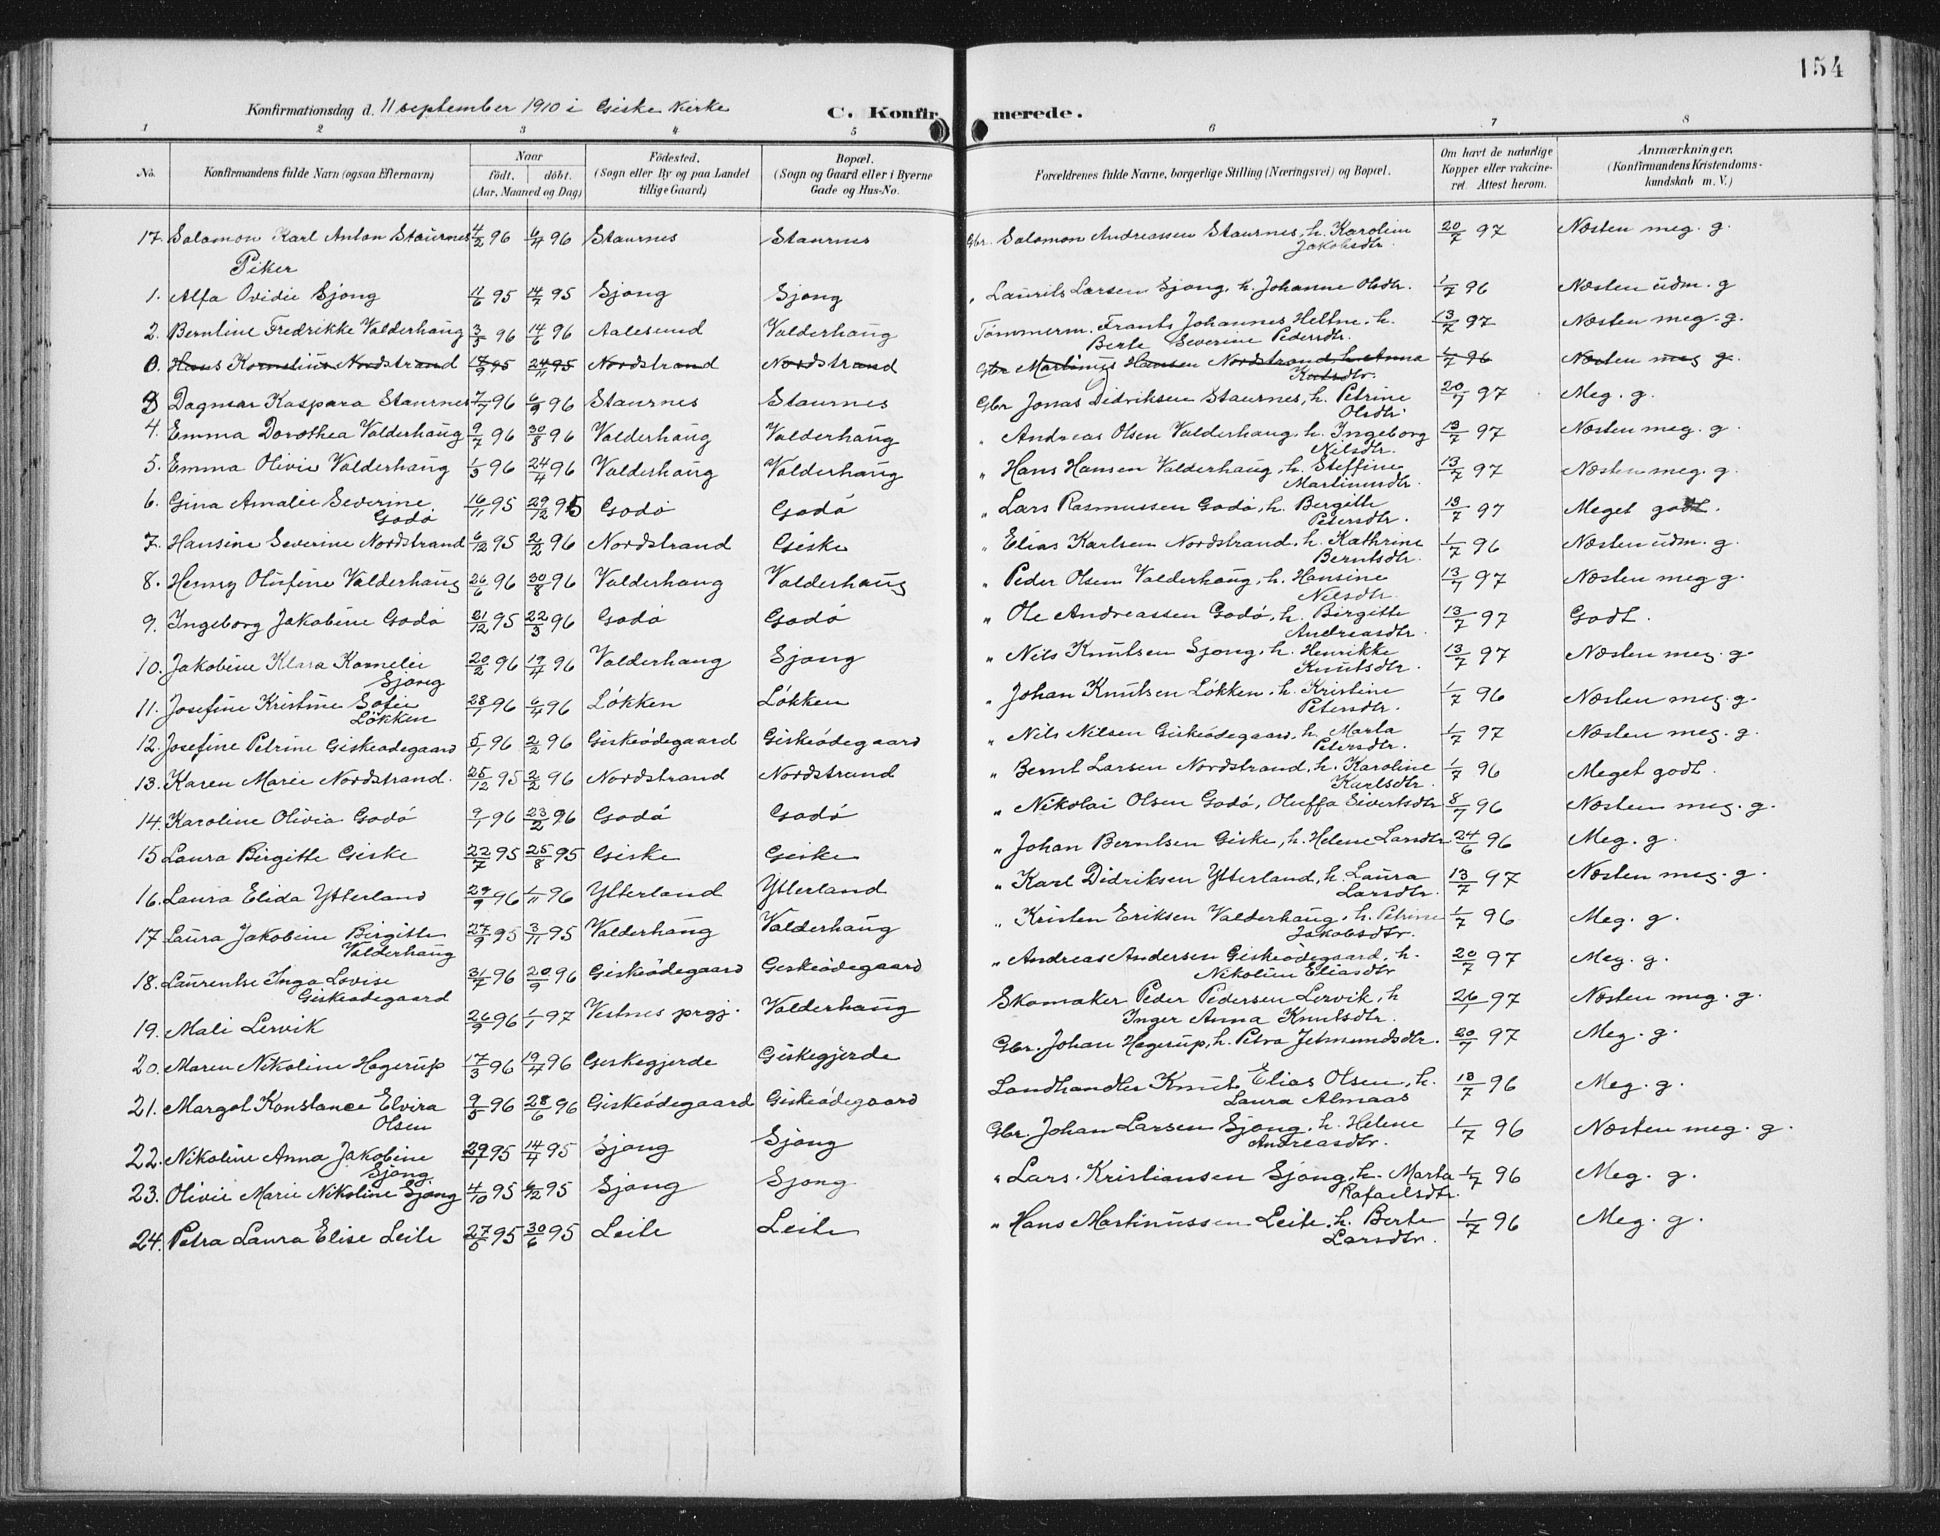 154
Konfirmationsdag d. 11 september 1910 i Giske Kirke C. Konfirmerede.
1 2 3 4 5 6 7 8
No. Konfirmandens fulde Navn (ogsaa Efternavn) Naar født. døbt. (Aar, Maaned og Dag) Fødested. (Sogn eller By og paa Landet tillige Gaard) Bopæl. (Sogn og Gaard eller i Byerne Gade og Hus-No. Forældrenes fulde Navne, borgerlige Stilling (Næringsvei) og Bopæl. Om havt de naturlige Kopper eller vakcineret. Attest herom. Anmærkninger. (Konfirmandens Kristendomskundskab m. V.)
17. Salamon Karl Anton Staurnes 4/2 96 6/4 96 Staurnes Staurnes Gbr. Salomon Andreassen Staurnes, h. Karolin Jakobsdtr. 20/7 97 Næsten meg. g.
Piker
1. Alfa Ovidie Sjong 11/6 95 14/7 95 Sjong Sjong " Laurits Larsen Sjong, h. Johanne Olsdtr. 1/7 96 Næsten udm. g
2. Berntine Fredrikke Valderhaug 3/5 96 14/6 96 Aalesund Valderhaug Tømmerm. Frants Johannes Heltne, h. Berte Severine Pedersdtr. 13/7 97 Næsten meg. g.
0. Hans Kornelius Nordstrand 17/9 95 24/11 95 Nordstrand Nordstrand Gbr Martinus Hansen Nordstrand, h. Anna Knutsdtr. 1/7 96 Næsten meg g.
3 Dagmar Kaspara Staurnes 7/7 96 6/9 96 Staurnes Staurnes Gbr Jonas Didriksen Staurnes, h. Petrine Olsdtr 20/7 97 Meg. g.
4. Emma Dorothea Valderhaug 9/7 96 30/8 96 Valderhaug Valderhaug " Andreas Olsen Valderhaug, h. Ingeborg Nilsdtr. 13/7 97 Næsten meg. g.
5. Emma Olivie Valderhaug 1/3 96 24/4 96 Valderhaug Valderhaug " Hans Hansen Valderhaug, h. Steffine Martinusdtr. 13/7 97 Næsten meg. g.
6. Gina Amalie Severine Godø 16/11 95 29/12 95 Godø Godø " Lars Rasmussen Godø, h. Bergitte Petersdtr. 13/7 97 Meget godt.
7. Hansine Severine Nordstrand 6/12 95 2/2 96 Nordstrand Giske " Elias Karlsen Nordstrand, h. Kathrine Berntsdtr. 1/7 96 Næsten udm. g.
8. Henny Olufine Valderhaug 26/6 96 30/8 96 Valderhaug Valderhaug " Peder Olsen Valderhaug, h. Hansine Nilsdtr. 13/7 97 Næsten meg g.
9. Ingeborg Jakobine Godø 31/12 95 22/3 96 Godø Godø " Ole Andreassen Godø, h. Birgitte Andreasdtr. 13/7 97 Godt.
10. Jakobine Klara Kornelie Sjong 20/2 96 19/4 96 Valderhaug Sjong " Nils Knutsen Sjong, h. Henrikke Knutsdtr. 13/7 97 Næsten meg. g.
11. Josefine Kristine Sofie Løkken 28/1 96 6/4 96 Løkken Løkken " Johan Knutsen Løkken, h. Kristine Petersdtr. 1/7 96 Næsten meg. g.
12. Josefine Petrine Giskeødegaard 5/1 96 2/2 96 Giskeødegaard Giskeødegaard " Nils Nilsen Giskeødegaard, h. Marta Petersdtr. 1/7 97 Næsten meg. g.
13. Karen Marie Nordstrand. 25/12 95 2/2 96 Nordstrand Nordstrand " Bernt Larsen Nordstrand, h. Karoline Karlsdtr. 1/7 96 Meget godt.
14. Karoline Olivia Godø 9/1 96 23/2 96 Godø Godø " Nikolai Olsen Godø, Oluffa Sivertsdtr 8/7 96 Næsten meg. g.
15 Laura Birgitte Giske 22/7 95 25/8 95 Giske Giske " Johan Berntsen Giske, h. Helene Larsdtr 24/6 96 Meg. g.
16. Laura Elida Ytterland 29/9 96 1/11 96 Ytterland Ytterland " Karl Didriksen Ytterland, h. Laura Larsdtr. 13/7 97 Næsten meg. g.
17 Laura Jakobine Birgitte Valderhaug 27/9 95 3/11 95 Valderhaug Valderhaug " Kristen Eriksen Valderhaug, h. Petrine Jakobsdtr. 1/7 96 Meg. g.
18. Laurentse Inga Lovise Giskeødegaard 31/7 96 20/9 96 Giskeödegaard Giskeødegaard " Andreas Andersen Giskeødegaard, h. Nikoline Eliasdtr 20/7 97 Meg. g.
19. Mali Lervik 26/9 96 1/1 97 Vestnes prgj. Valderhaug Skomaker Peder Pedersen Lervik, h Inger Anna Knutsdtr. 26/1 97 Næsten meg. g.
20. Maren Nikoline Hagerup 17/3 96 19/4 96 Giskegjerde Giskegjerde Gbr. Johan Hagerup, h. Petra Jetmundsdtr. 20/7 97 Meg. g.
21. Margot Konstance Elvira Olsen 9/5 96 28/6 96 Giskeødegaard Giskeødegaard Landhandler Knut Elias Olsen, h. Laura Almaas 13/7 96 Meg. g.
22. Nikoline Anna Jakobine Sjong. 29/1 95 14/4 95 Sjong Sjong Gbr. Johan Larsen Sjong, h. Helene Andreasdtr. 1/7 96 Næsten meg. g.
23. Olivie Marie Nikoline Sjong 4/10 95 6/12 95 Sjong Sjong " Lars Kristiansen Sjong, h. Marta Rafaelsdtr. 1/7 96 Meg. g.
24. Petra Laura Elise Leite 27/5 95 30/6 95 Leite Leite " Hans Martinussen Leite, h. Berte Larsdtr. 1/7 96 Meg. g.